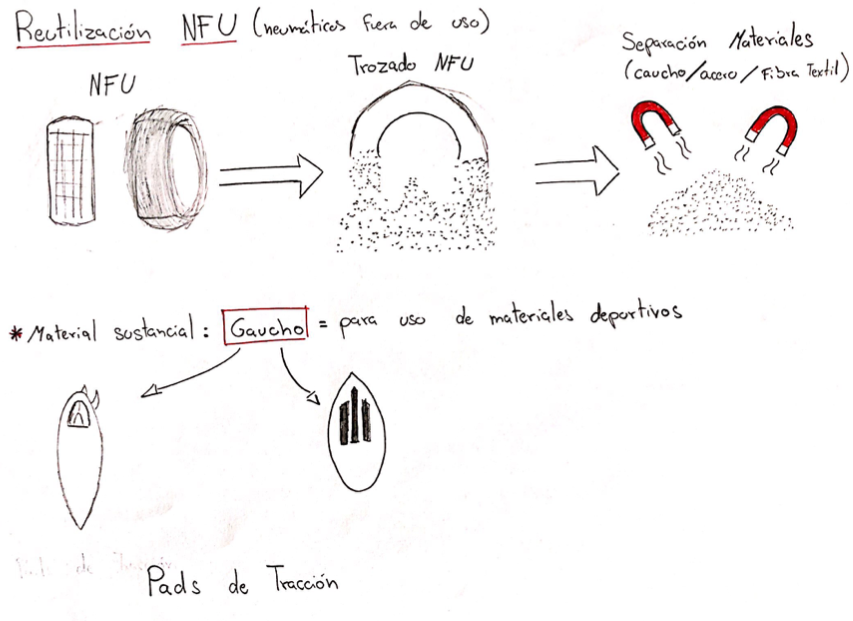 Reutilización NFU (neumáticos fuera de uso)
NFU
Trozado NFU
Separación Materiales
(caucho/acero/Fibra Textil)
*Material sustancial: Gaucho = para uso de materiales deportivos
Pads de Tracción